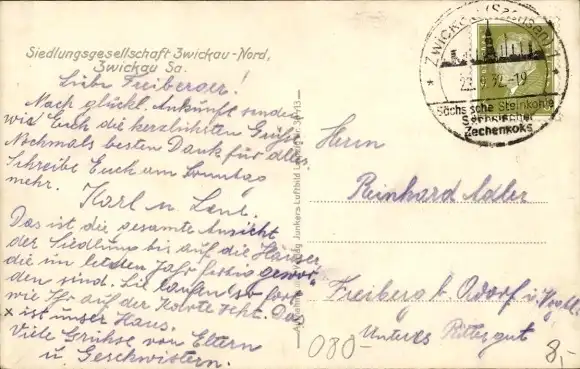 Siedlungsgesellschaft Zwickau-Nord,
Zwickau Sa.
Liebe Freiberger!
Nach glückl. Ankunft senden
wir Euch die herzlichsten Grüße
Nochmals besten Dank für alles
Schreibe Euch am Sonntag
mehr.
Karl u. Lene.
Das ist die gesamte Ansicht
der Siedlung bis auf die Häuser
die im letzten Jahr fertig gewor
den sind. Sie laufen so fort
wie Ihr auf der Karte seht. Das
x ist unser Haus.
Viele Grüße von Eltern
u. Geschwistern.
Junkers Luftbild
Zwickau (Sachsen)
22. 9. 32.-19
Sächsische Steinkohle
Sächsischer
Zechenkoks
Herrn
Reinhard Adler
Freiberg b. Adorf i. Vogtl.
Unteres Rittergut
080-
8,-